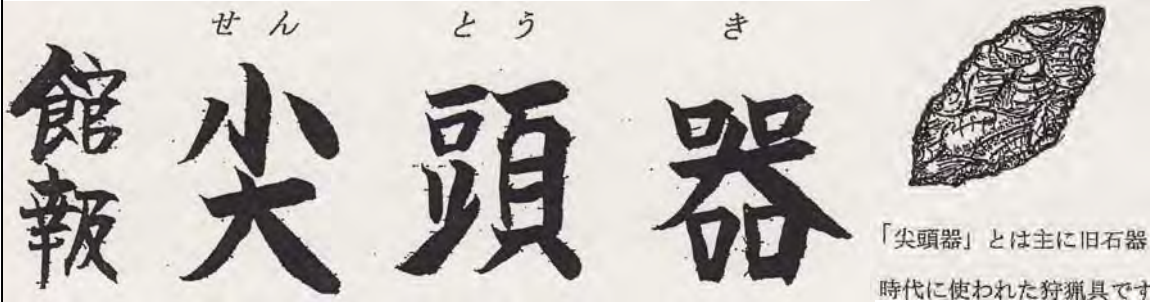 館報
せんとうき
尖頭器
「尖頭器」とは主に旧石器
時代に使われた狩猟具です